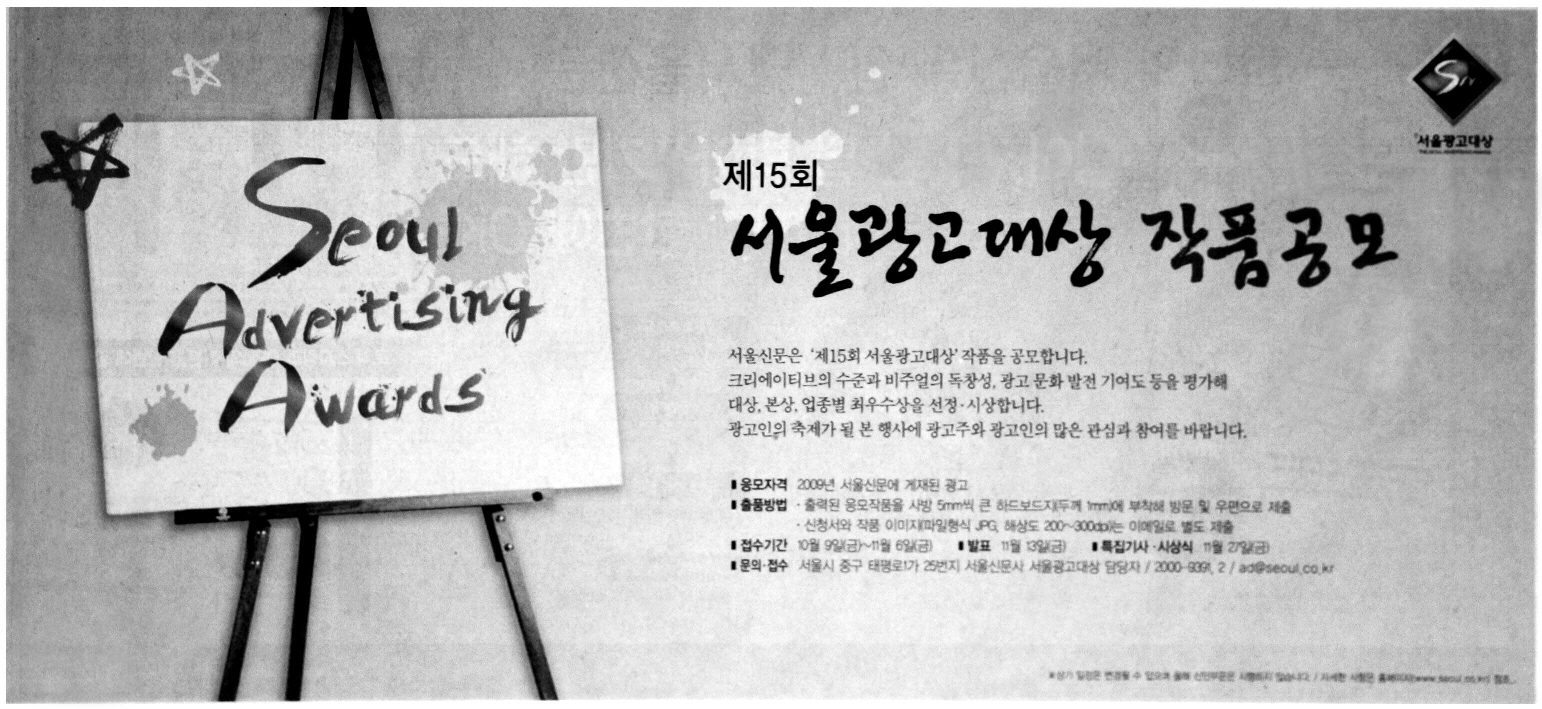 Seoul
Advertising
Awards
서울광고대상
제15회
서울광고대상 작품공모
서울신문은 '제15회 서울광고대상' 작품을 공모합니다.
크리에이티브의 수준과 비주얼의 독창성, 광고 문화 발전 기여도 등을 평가해
대상, 본상, 업종별 최우수상을 선정·시상합니다.
광고인의 축제가 될 본 행사에 광고주와 광고인의 많은 관심과 참여를 바랍니다.
▮응모자격 2009년 서울신문에 게재된 광고
▮출품방법 · 출력된 응모작품을 사방 5mm씩 큰 하드보드지(두께 1mm)에 부착해 방문 및 우편으로 제출
· 신청서와 작품 이미지(파일형식 JPG, 해상도 200~300dpi)는 이메일로 별도 제출
▮접수기간 10월 9일(금)~11월 6일(금) ▮발표 11월 13일(금) ▮특집기사·시상식 11월 27일(금)
▮문의·접수 서울시 중구 태평로1가 25번지 서울신문사 서울광고대상 담당자 / 2000-9391, 2 / ad@seoul.co.kr
※상기 일정은 변경될 수 있으며 올해 신인부문은 시행하지 않습니다. / 자세한 사항은 홈페이지(www.seoul.co.kr) 참조.